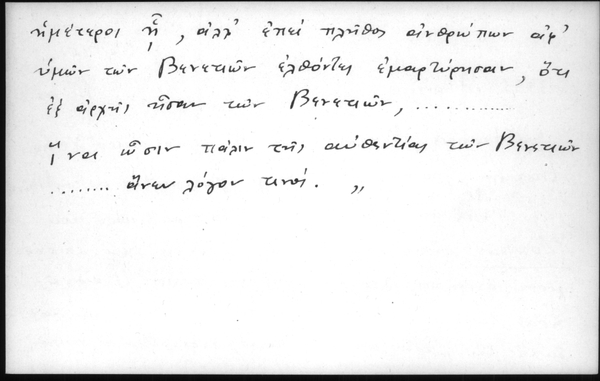 ἡμέτεροι ἦ, ἀλλ' ἐπεὶ πλῆθος ἀνθρώπων ἀφ'
ὑμῶν τῶν Βενετιῶν ἐλθόντες ἐμαρτύρησαν, ὅτι
ἐξ ἀρχῆς ἦσαν τῶν Βενετιῶν, .............
ἵνα ὦσιν πάλιν τῆς αὐθεντίας τῶν Βενετιῶν
........ ἄνευ λόγου τινός. „